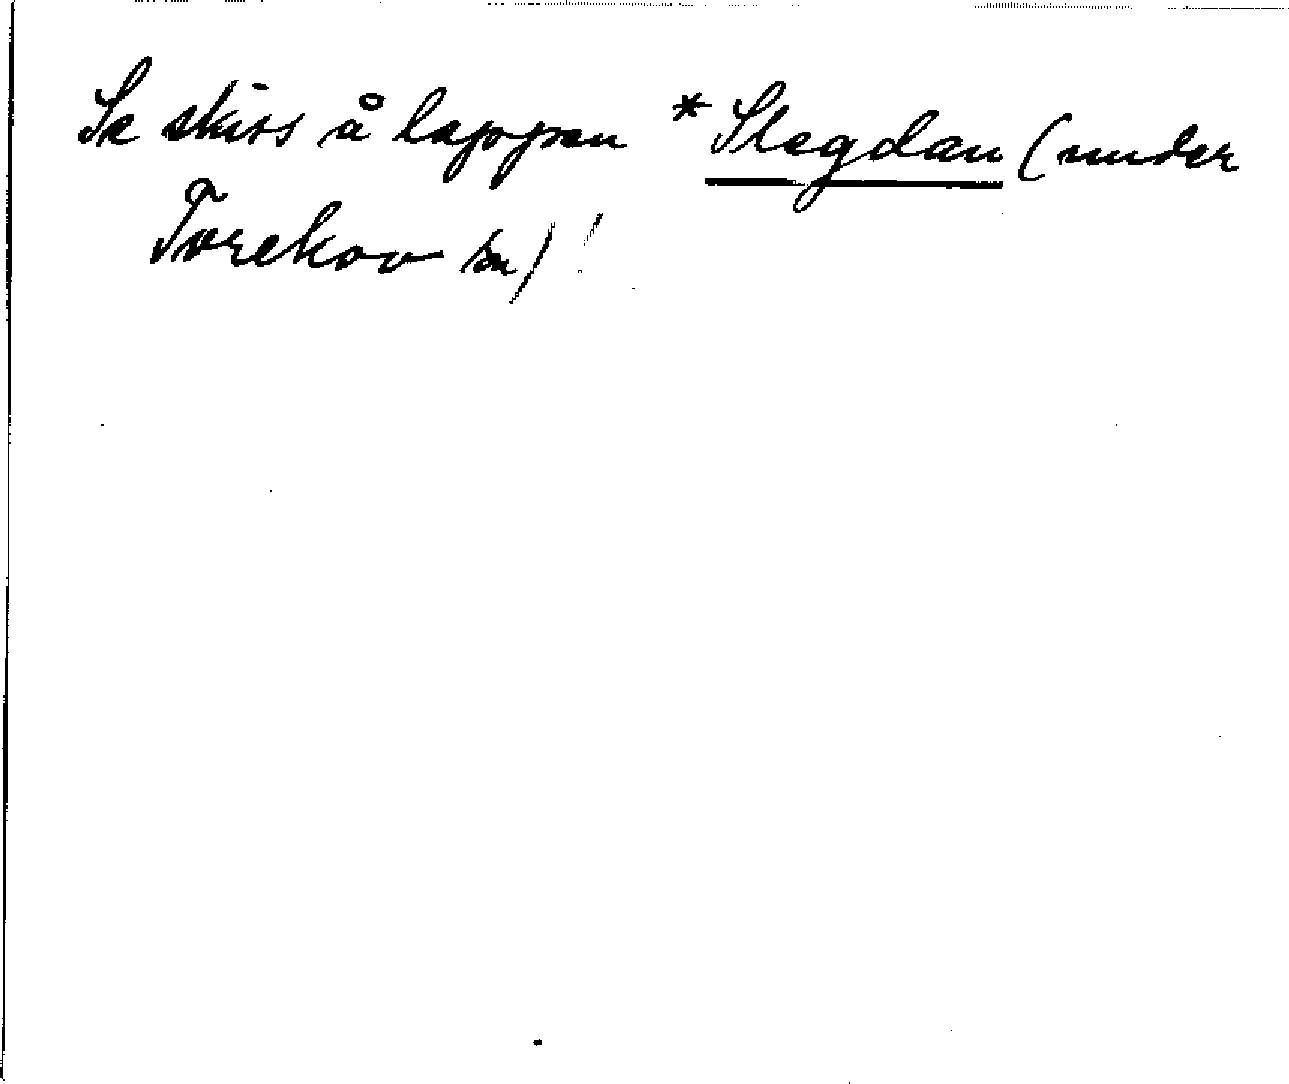 Se skiss å lappen *Slagdan (under
Torekov sn)!